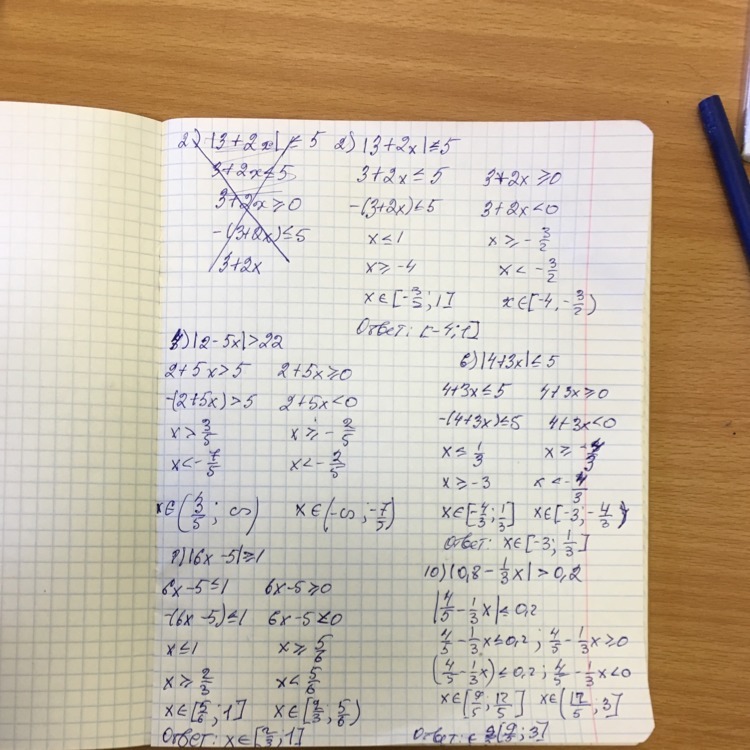 2) |3+2x| ≤ 5
3+2x≤5
3+2x≥0
-(3+2x)≤5
3+2x
2) |3+2x|≤5
3+2x≤5 3+2x≥0
-(3+2x)≤5 3+2x<0
x≤1 x≥-3/2
x≥-4 x<-3/2
x∈[-3/5;1] x∈[-4,-3/2)
Ответ: [-4;1]
4) |2-5x|>22
2+5x>5 2+5x≥0
-(2+5x)>5 2+5x<0
x>3/5 x≥-2/5
x<-7/5 x<-2/5
x∈(3/5; ∞) x∈(-∞;-7/5)
6) |4+3x|≤5
4+3x≤5 4+3x≥0
-(4+3x)≤5 4+3x<0
x≤1/3 x≥-4/3
x≥-3 x<-4/3
x∈[-4/3;1/3] x∈[-3;-4/3)
Ответ: x∈[-3;1/3]
|6x-5|≥1
6x-5≤1 6x-5≥0
-(6x-5)≤1 6x-5<0
x≤1 x≥5/6
x≥2/3 x<5/6
x∈[5/6;1] x∈[2/3;5/6)
Ответ: x∈[2/3;1]
10) |0,8-1/3x|>0,2
|4/5-1/3x|≤0,2
4/5-1/3x≤0,2; 4/5-1/3x≥0
(4/5-1/3x)≤0,2; 4/5-1/3x<0
x∈[9/5,12/5] x∈(12/5,3]
Ответ: [9/5;3]